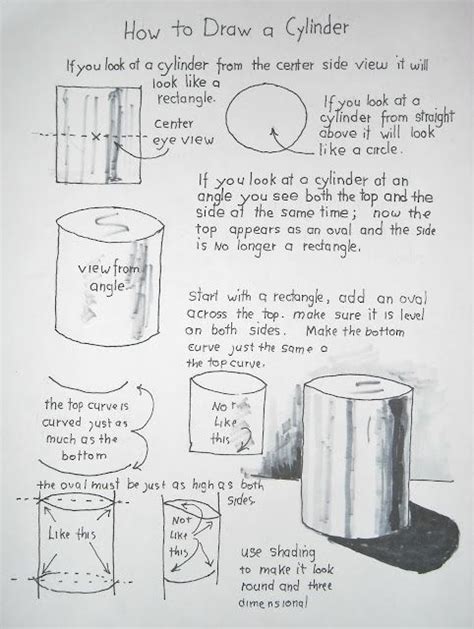 How to Draw a Cylinder
If you look at a cylinder from the center side view it will
look like a
rectangle.
center
eye view
If you look at a
cylinder from straight
above it will look
like a circle.
If you look at a cylinder at an
angle you see both the top and the
side at the same time; now the
top appears as an oval and the side
is No longer a rectangle.
view from
angle
Start with a rectangle, add an oval
across the top. make sure it is level
on both sides. Make the bottom
curve just the same a
the top curve.
the top curve is
curved just as
much as the
bottom
Not
Like
this
the oval must be just as high as both
sides.
Like this
Not
like
this
use shading
to make it look
round and three
dimensional